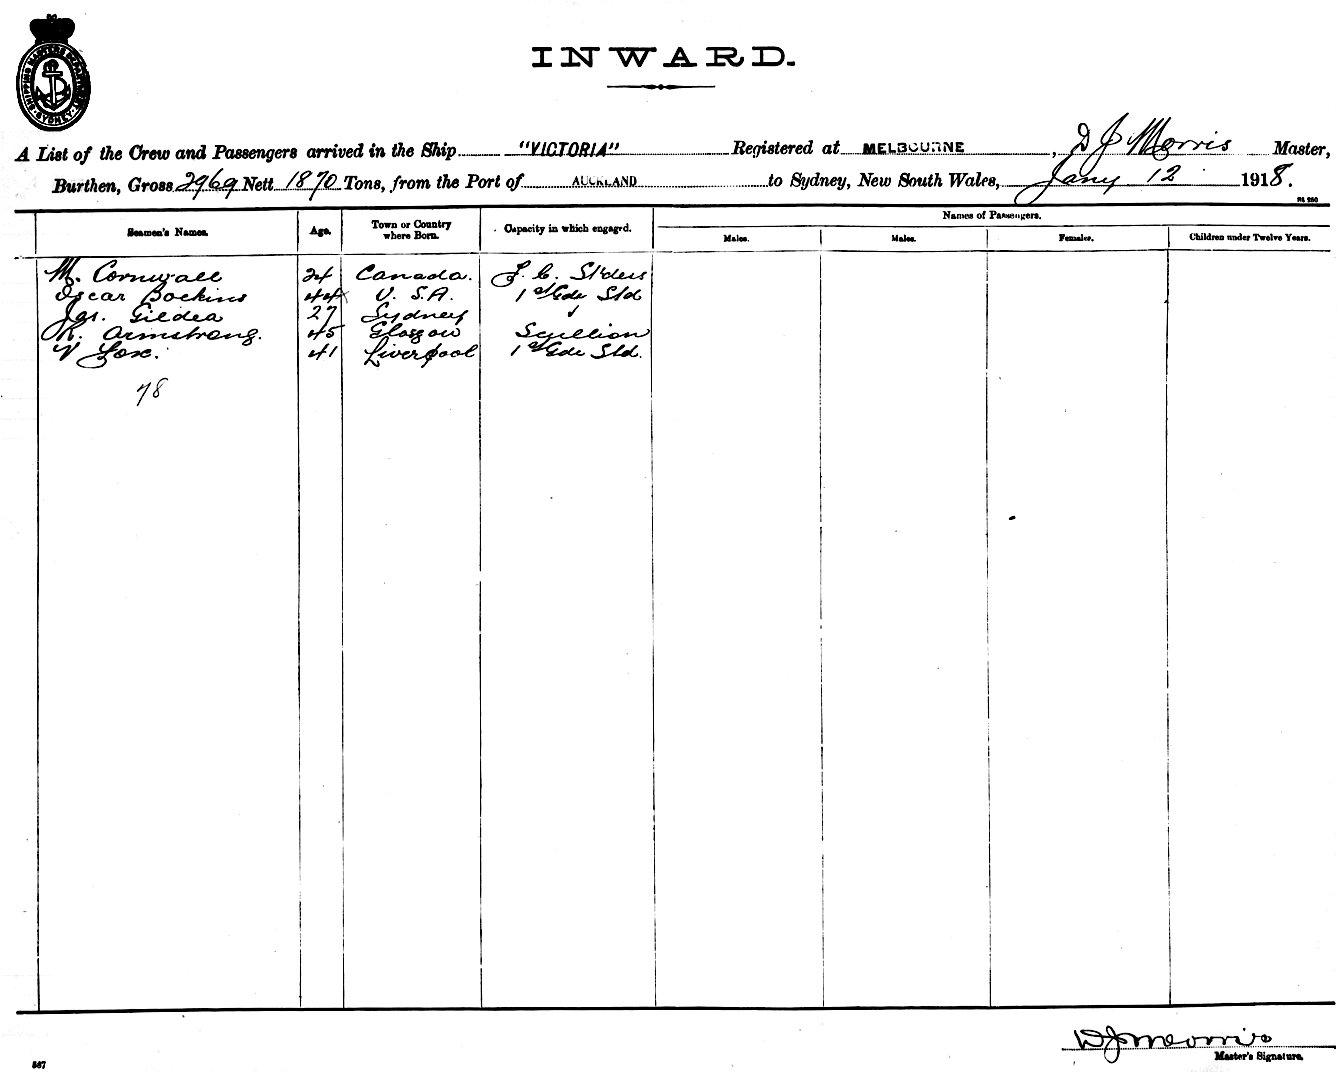 SHIPPING MASTERS DEPARTMENT SYDNEY
INWARD.
A List of the Crew and Passengers arrived in the Ship "VICTORIA" Registered at MELBOURNE, D J Morris Master,
Burthen, Gross 2969 Nett 1870 Tons, from the Port of AUCKLAND to Sydney, New South Wales, Jany 12 1918.
Names of Passengers.
Seamen's Names. Age. Town or Country where Born. Capacity in which engaged. Males. Males. Females. Children under Twelve Years.
M. Cornwall 24 Canada.
Oscar Bockins 44 U.S.A. 1st Gde Std
Jas. Gildea 27 Sydney
R. Armstrong. 45 Glasgow Scullion
V Fox. 41 Liverpool 1st Gde Std.
78
D J Morris
Master's Signature.
567